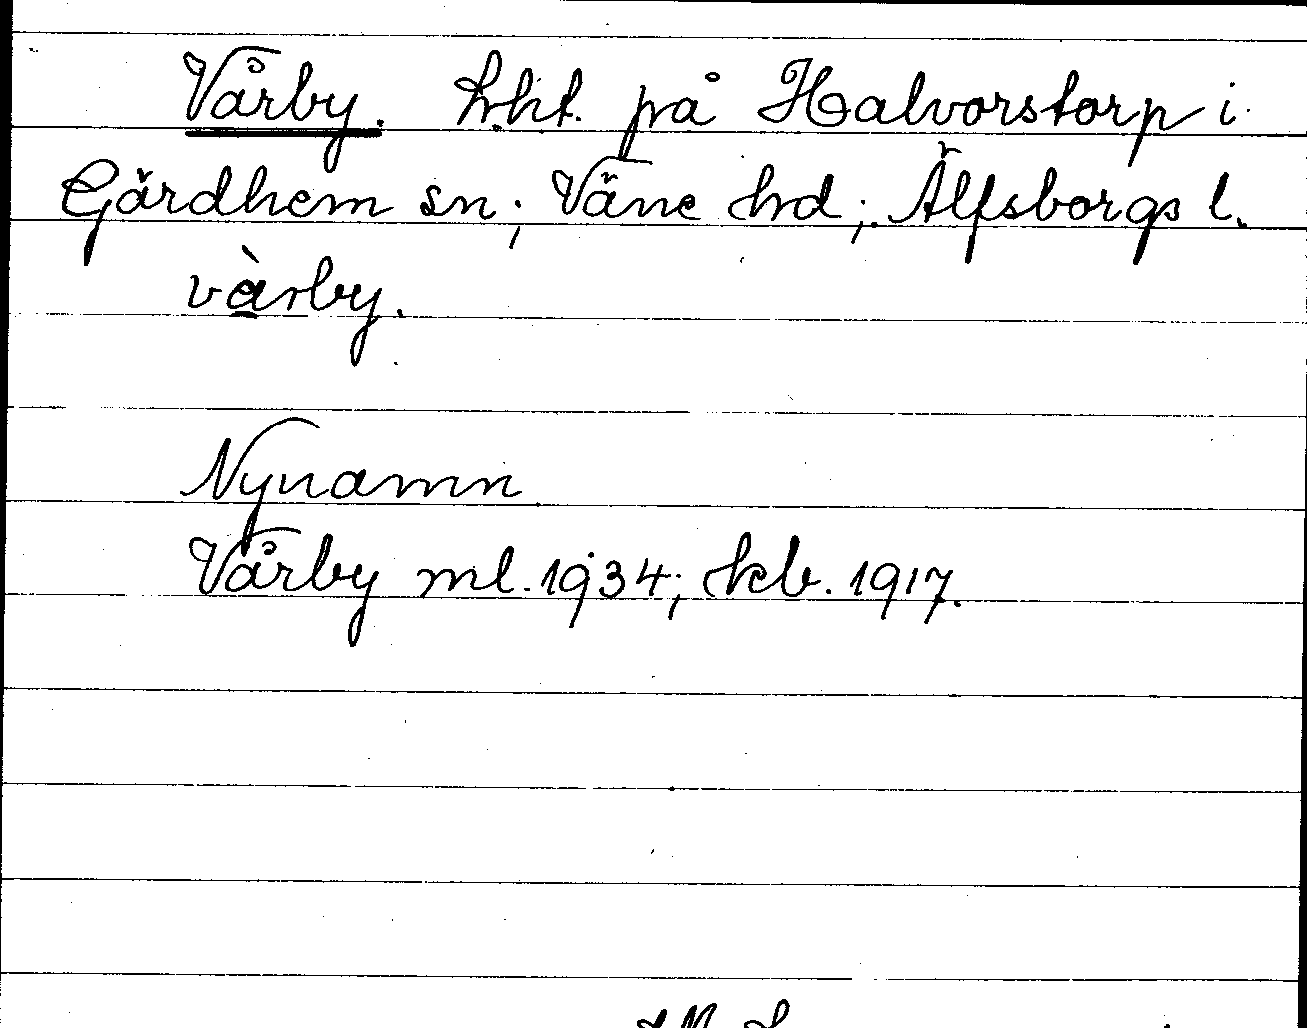 Vårby. h.ht. på Halvorstorp i
Gärdhem sn; Väne hd; Älfsborgs l.
vàrby.
Nynamn
Vårby ml. 1934; kb. 1917.